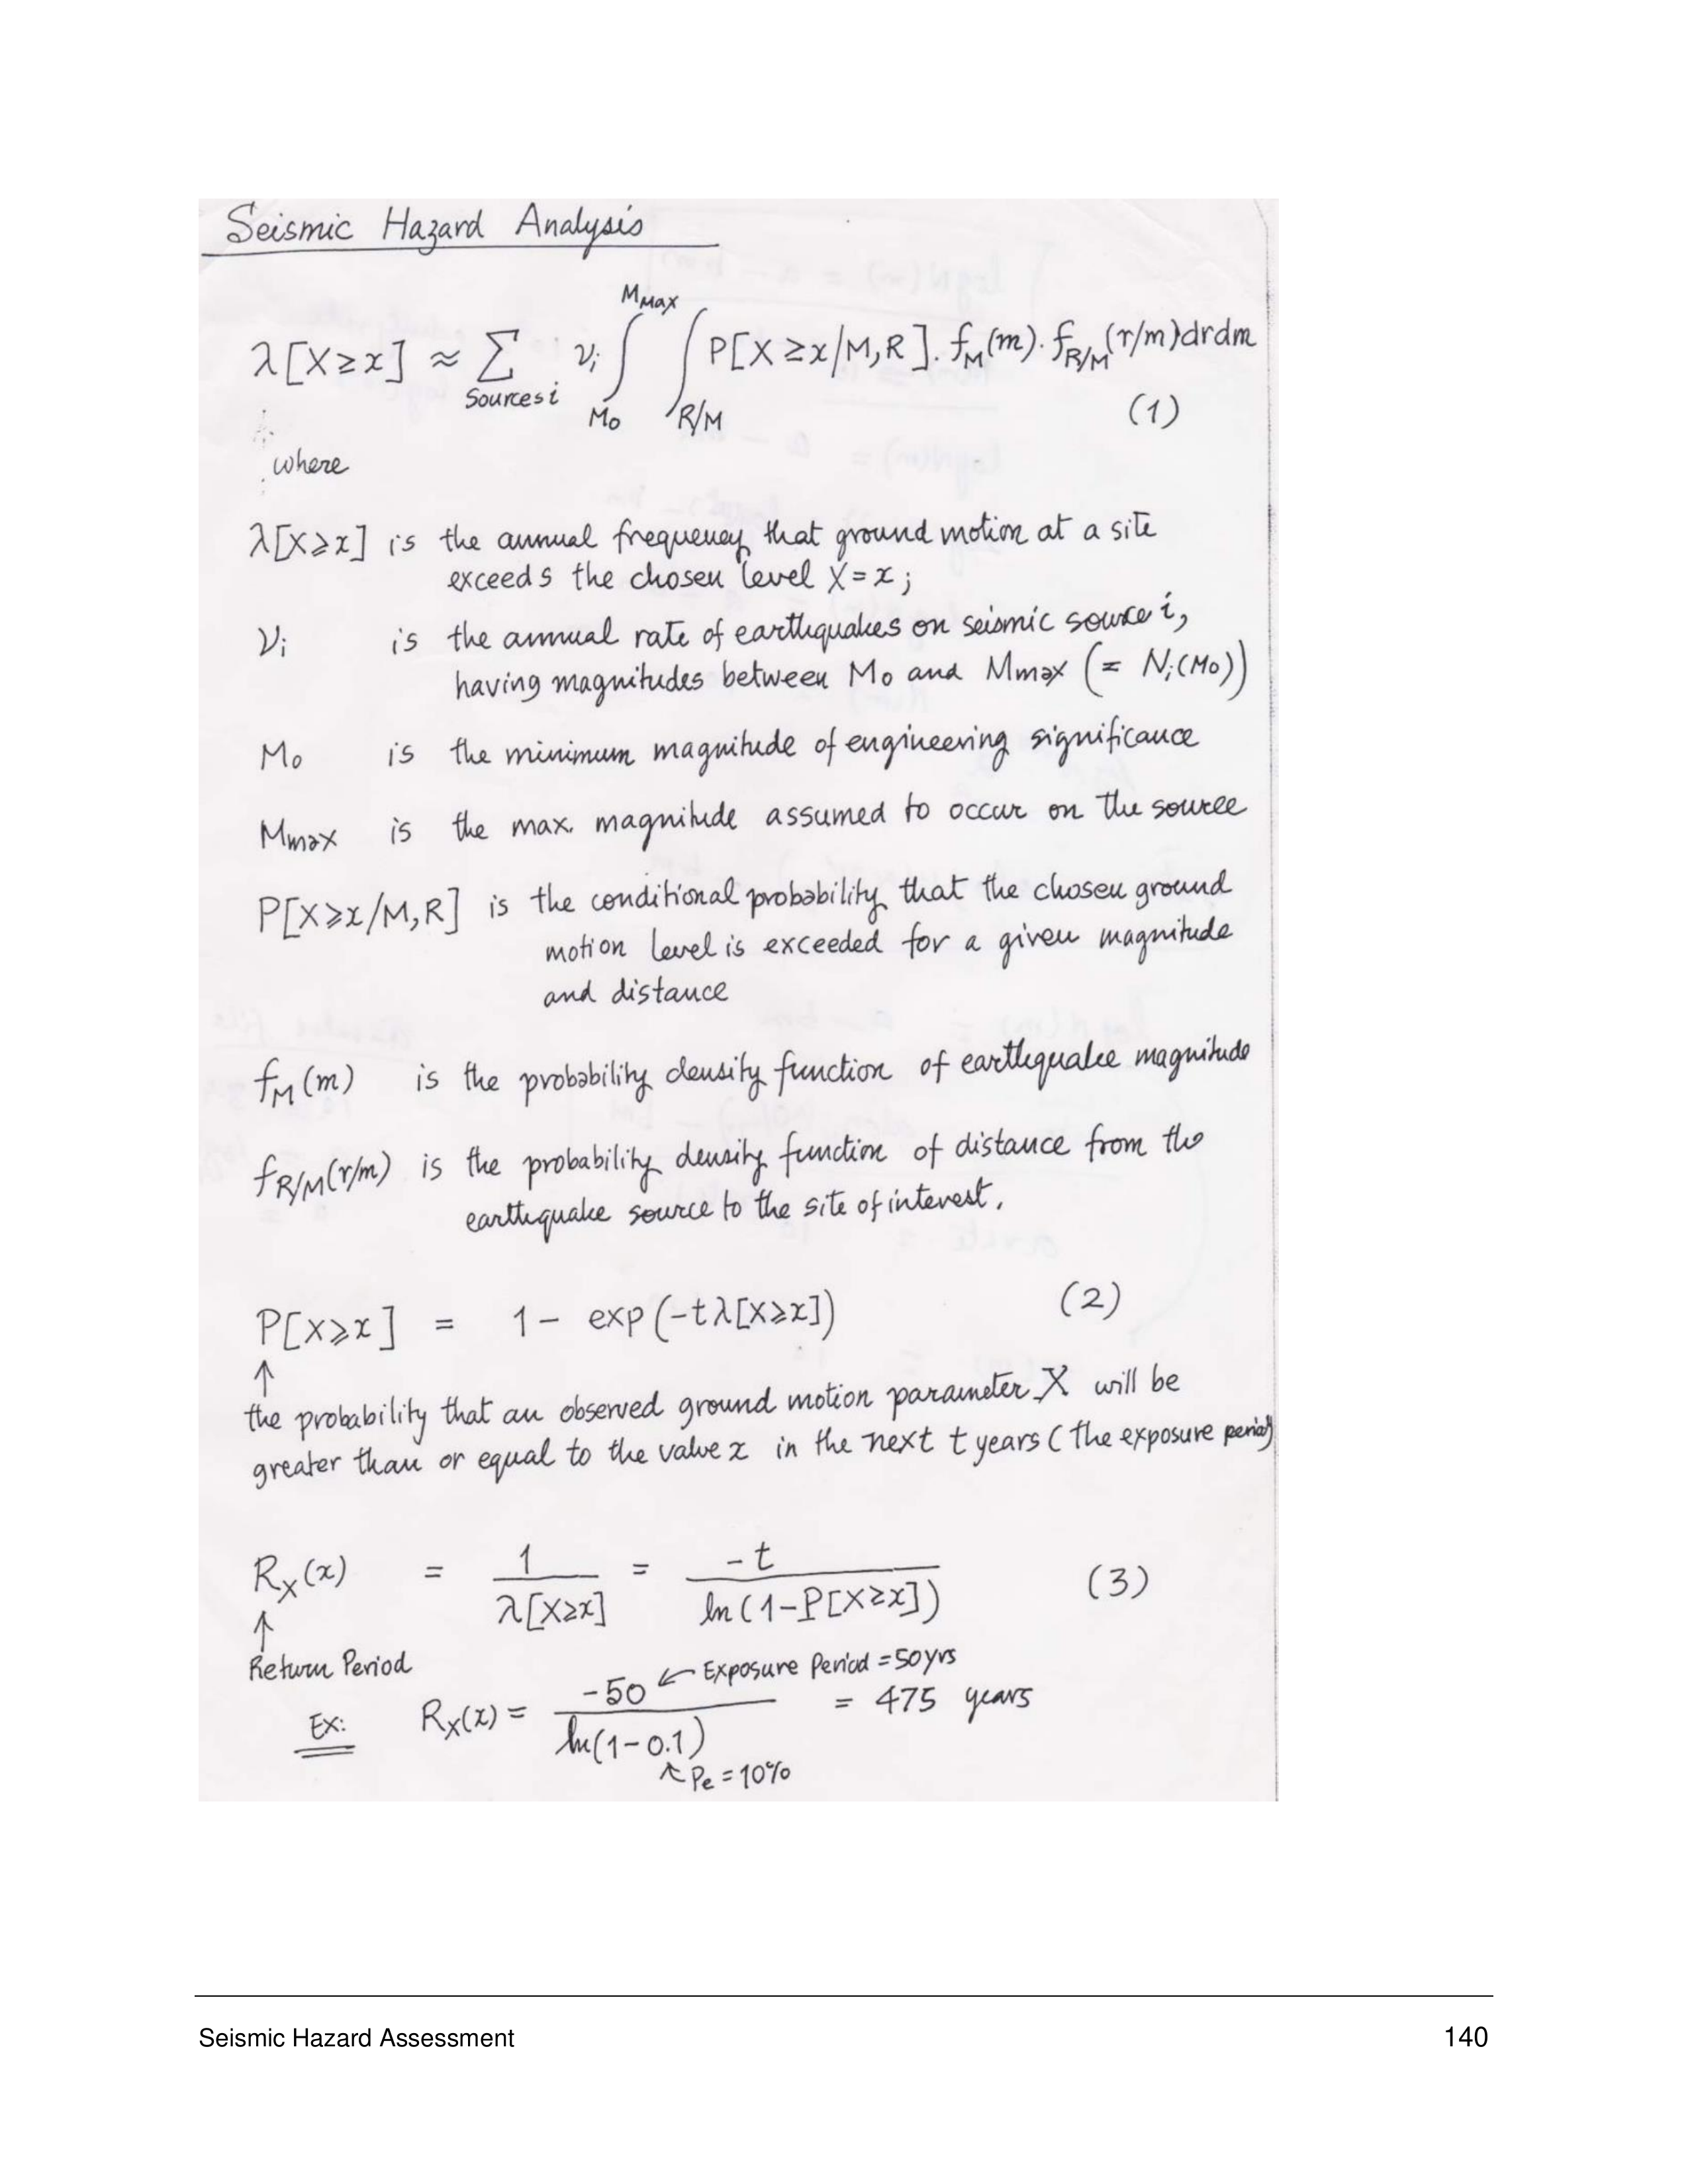 Seismic Hazard Analysis
λ[X≥x] ≈ Σ Sources i νi ∫ M0 MMax ∫ R/M P[X≥x/M,R]. fM(m). fR/M(r/m)drdm
(1)
where
λ[X≥x] is the annual frequency that ground motion at a site
exceeds the chosen level X=x;
νi is the annual rate of earthquakes on seismic source i,
having magnitudes between Mo and Mmax (= Ni(Mo))
Mo is the minimum magnitude of engineering significance
Mmax is the max. magnitude assumed to occur on the source
P[X≥x/M,R] is the conditional probability that the chosen ground
motion level is exceeded for a given magnitude
and distance
fM(m) is the probability density function of earthquake magnitude
fR/M(r/m) is the probability density function of distance from the
earthquake source to the site of interest.
P[X≥x] = 1 - exp(-tλ[X≥x]) (2)
↑
the probability that an observed ground motion parameter X will be
greater than or equal to the value x in the next t years (the exposure period)
RX(x) = 1 / λ[X≥x] = -t / ln(1-P[X≥x]) (3)
↑
Return Period
Ex: RX(x) = -50 / ln(1-0.1) = 475 years
← Exposure Period = 50 yrs
↖ Pe = 10%
Seismic Hazard Assessment 140